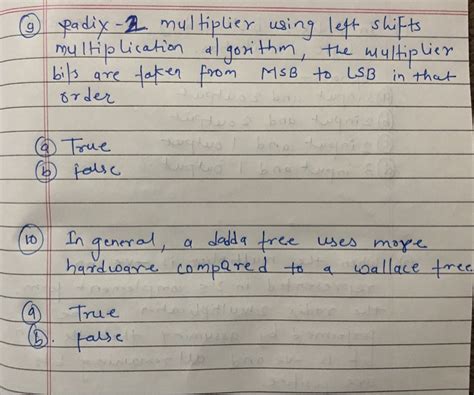 9 Radix-2 multiplier using left shifts
multiplication algorithm, the multiplier
bits are taken from MSB to LSB in that
order
a True
b false
10 In general, a dadda tree uses more
hardware compared to a wallace tree
a True
b. false